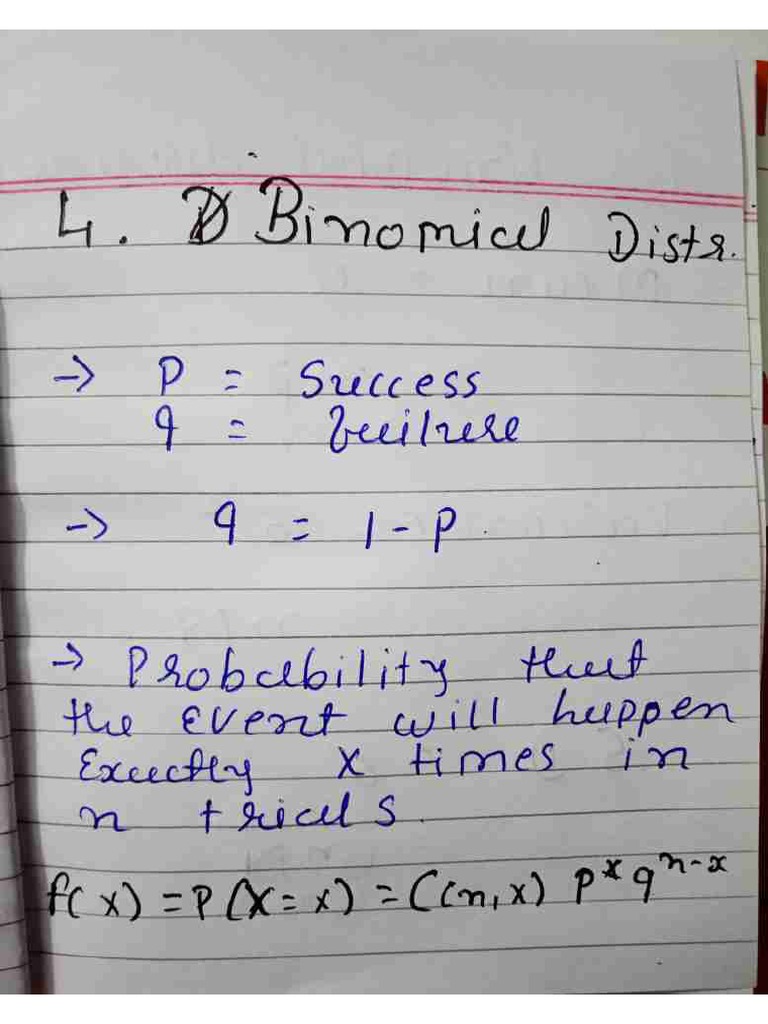 4. Binomial Distr.
→ P = Success
q = failure
→ q = 1 - P
→ Probability that
the event will happen
Exactly x times in
n trials.
f(x) = P(X = x) = C(n,x) P^x q^n-x